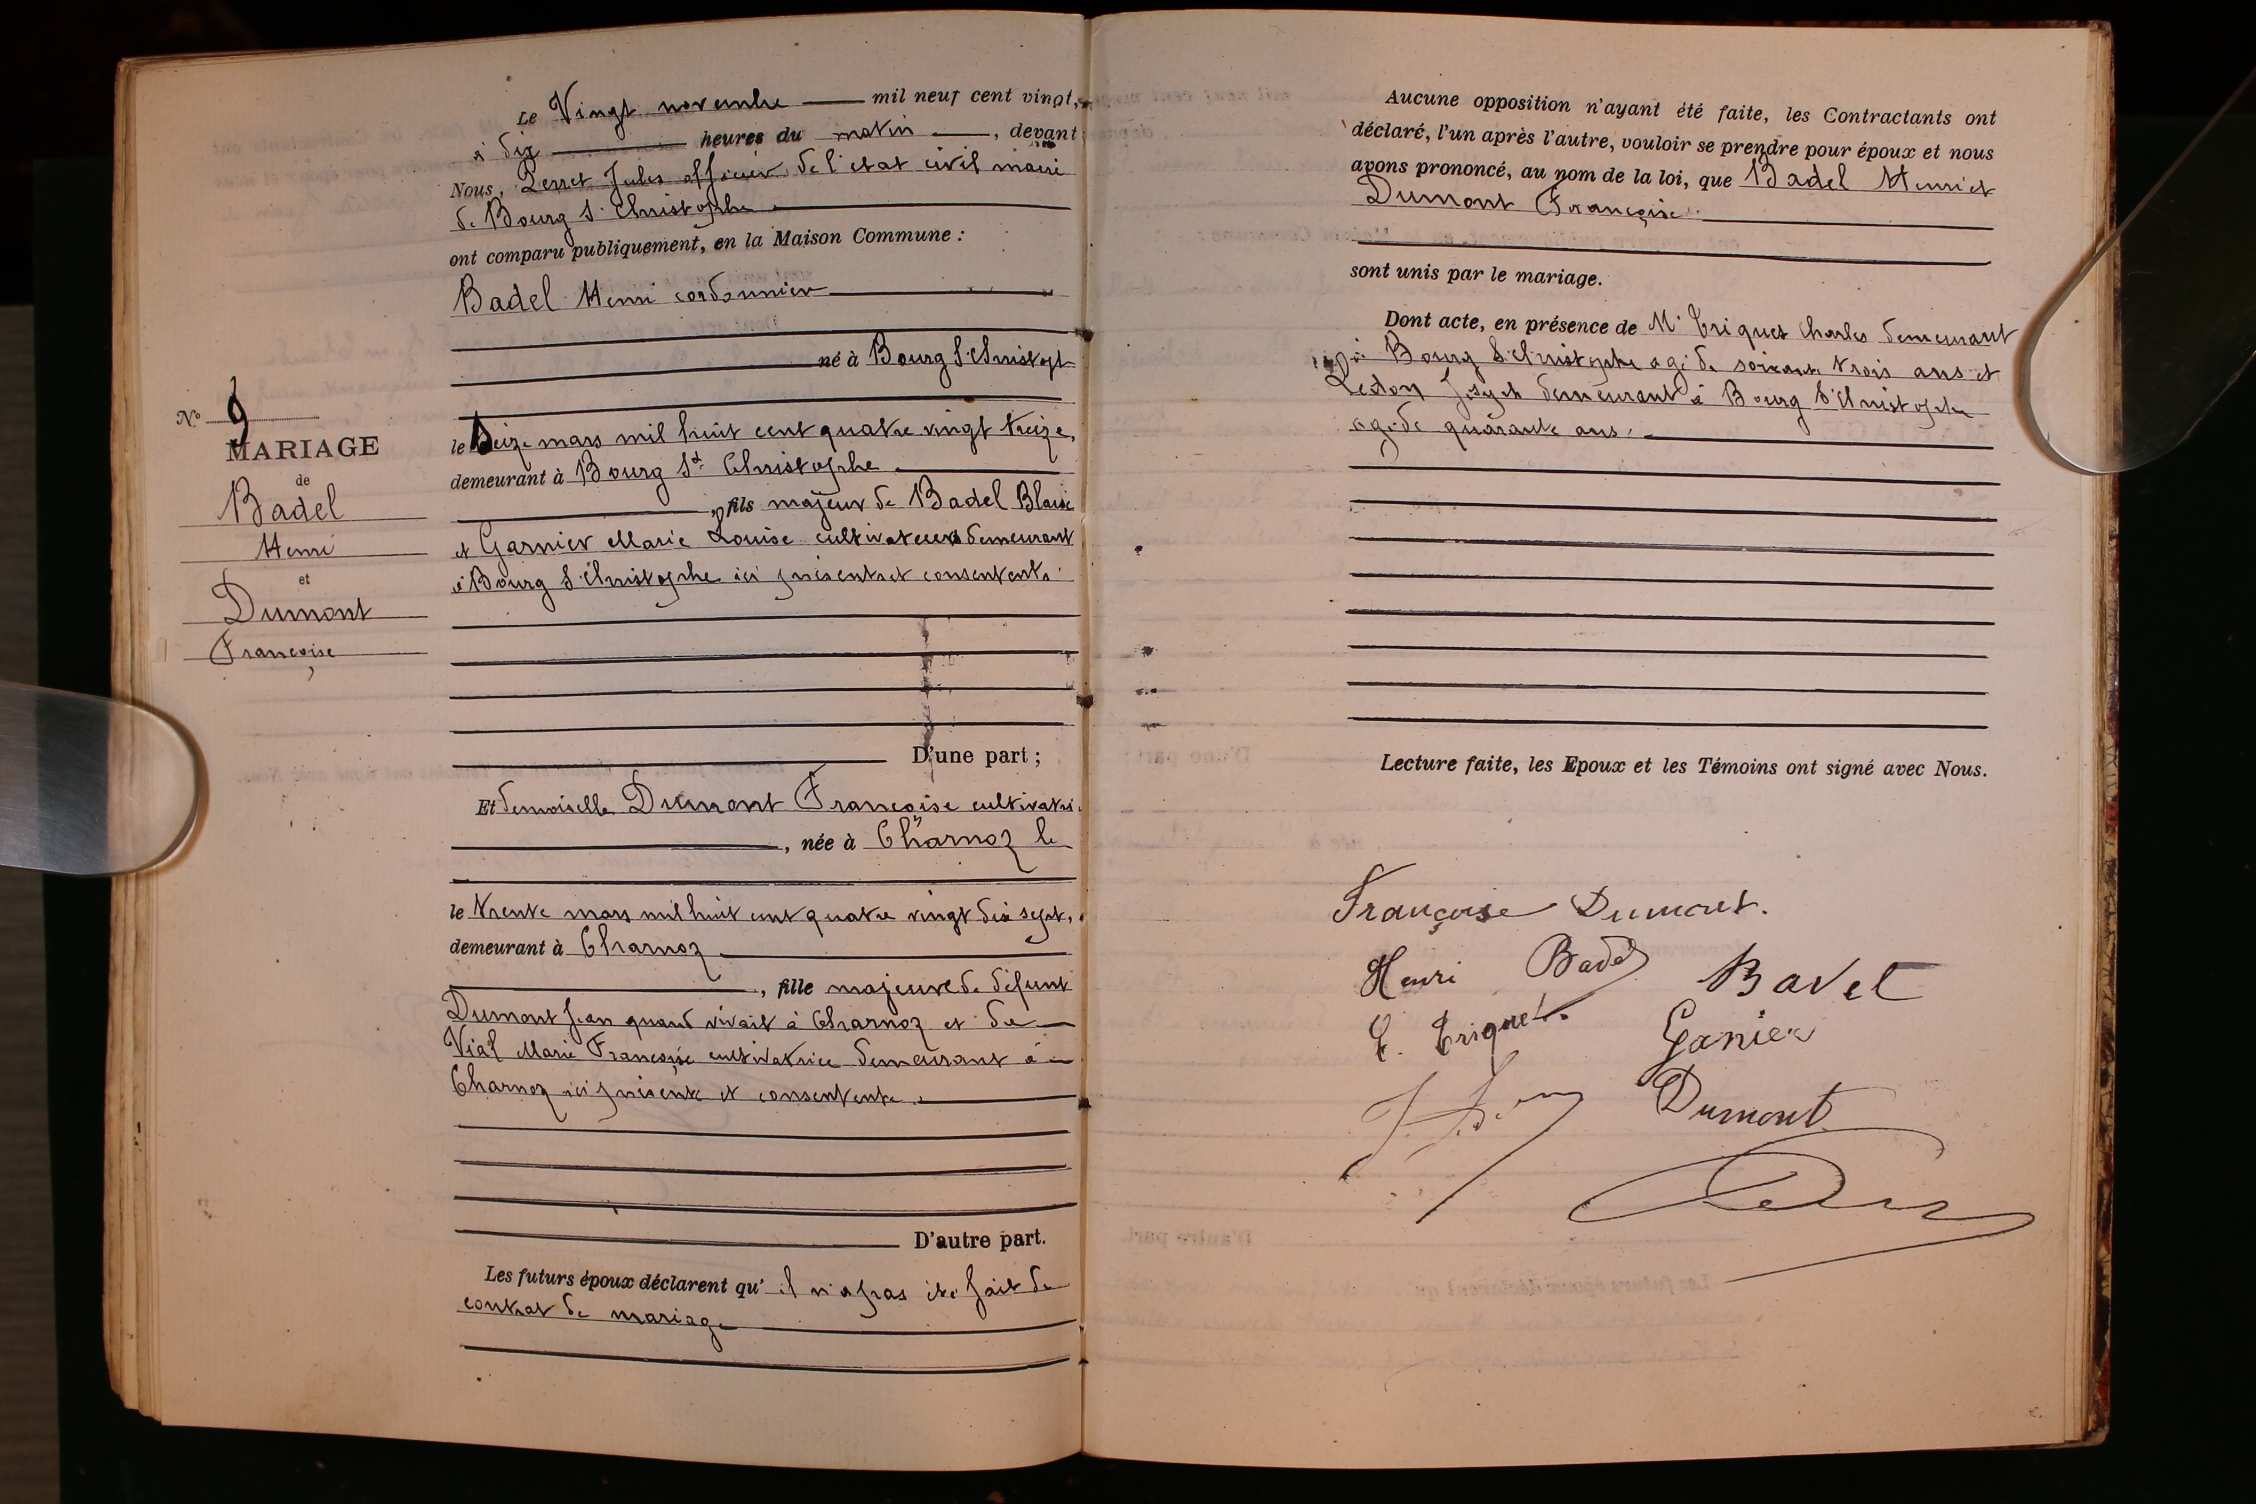 Le Vingt novembre mil neuf cent vingt,
à dix heures du matin, devant
Nous, Perret Jules officier de l'etat civil maire
de Bourg St Christophe
ont comparu publiquement, en la Maison Commune :
Badel Henri cordonnier
né à Bourg St Christoph
No 9
MARIAGE
de
Badel
Henri
et
Dumont
Françoise
le Seize mars mil huit cent quatre vingt treize,
demeurant à Bourg St Christophe
, fils majeur de Badel Blaise
et Garnier Marie Louise cultivateurs demeurant
à Bourg St Christophe ici présents et consentents.
D'une part ;
Et demoiselle Dumont Françoise cultivatri
, née à Charnoz le
le trente mars mil huit cent quatre vingt dix sept,
demeurant à Charnoz
, fille majeure de défunt
Dumont Jean quand vivait à Charnoz et de
Vial Marie Françoise cultivatrice demeurant à
Charnoz ici présente et consentente.
D'autre part.
Les futurs époux déclarent qu'il n'a pas été fait de
contrat de mariage
Aucune opposition n'ayant été faite, les Contractants ont
déclaré, l'un après l'autre, vouloir se prendre pour époux et nous
avons prononcé, au nom de la loi, que Badel Henri et
Dumont Françoise
sont unis par le mariage.
Dont acte, en présence de Mr Triquet Charles demeurant
à Bourg St Christophe agé de soixante trois ans et
Joseph demeurant à Bourg St Christophe
agé de quarante ans.
Lecture faite, les Epoux et les Témoins ont signé avec Nous.
Françoise Dumont.
Henri Badel Badel
C. Triquet. Ganier
Dumont